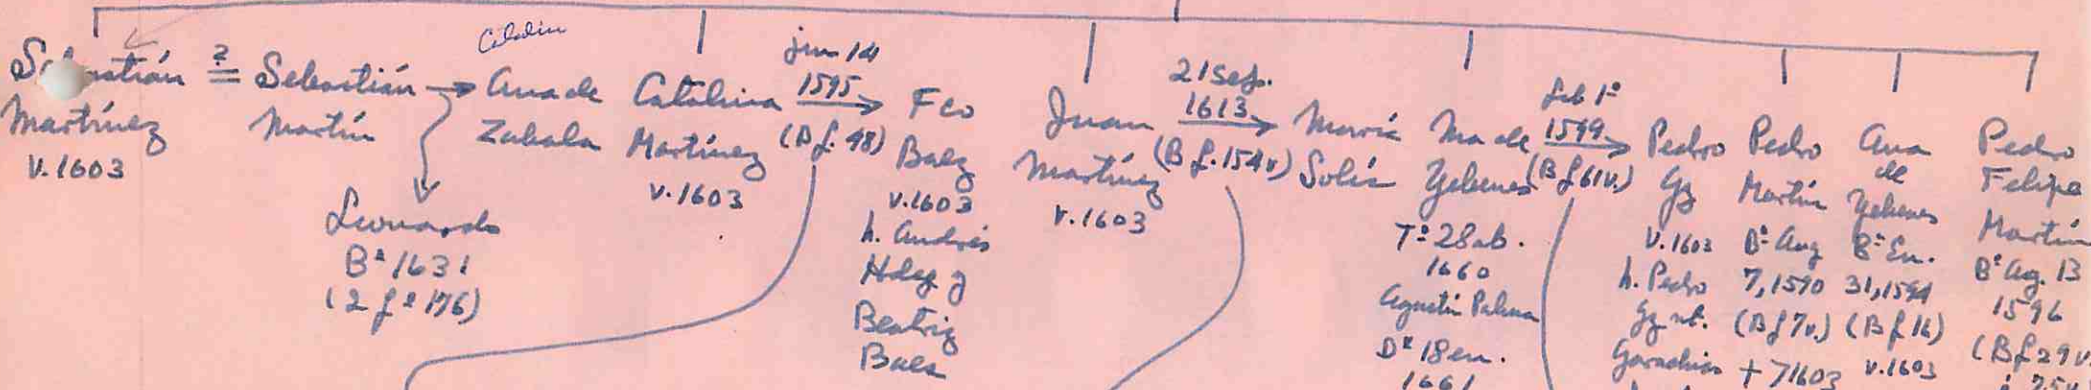 Sebastián
Martínez
V. 1603
?
=
Sebastián
Martín
Leonardo
Bº 1631
(2 fº 176)
Ana de
Zabala
Catalina
Martínez
V. 1603
jun 14
1595
(B f. 48)
Fco
Baez
V. 1603
h. Andrés
Hdez y
Beatriz
Baes
Juan
Martínez
V. 1603
21 Sep.
1613
(B f. 154v)
María
Solís
Ma de
Yebenes
Tº 28 ab.
1660
Agustín Palma
Dº 18 en.
1661
feb 1º
1599
(B f 61v.)
Pedro
Gz
V. 1603
h. Pedro
Gz nt.
Pedro
Martín
Bº Aug
7, 1590
(B f 7v.)
+ 71603
Ana
de
Yebenes
Bº En.
31, 1594
(B f 16)
V. 1603
Pedro
Felipe
Martín
Bº Ag. 13
1596
(B f 29v.